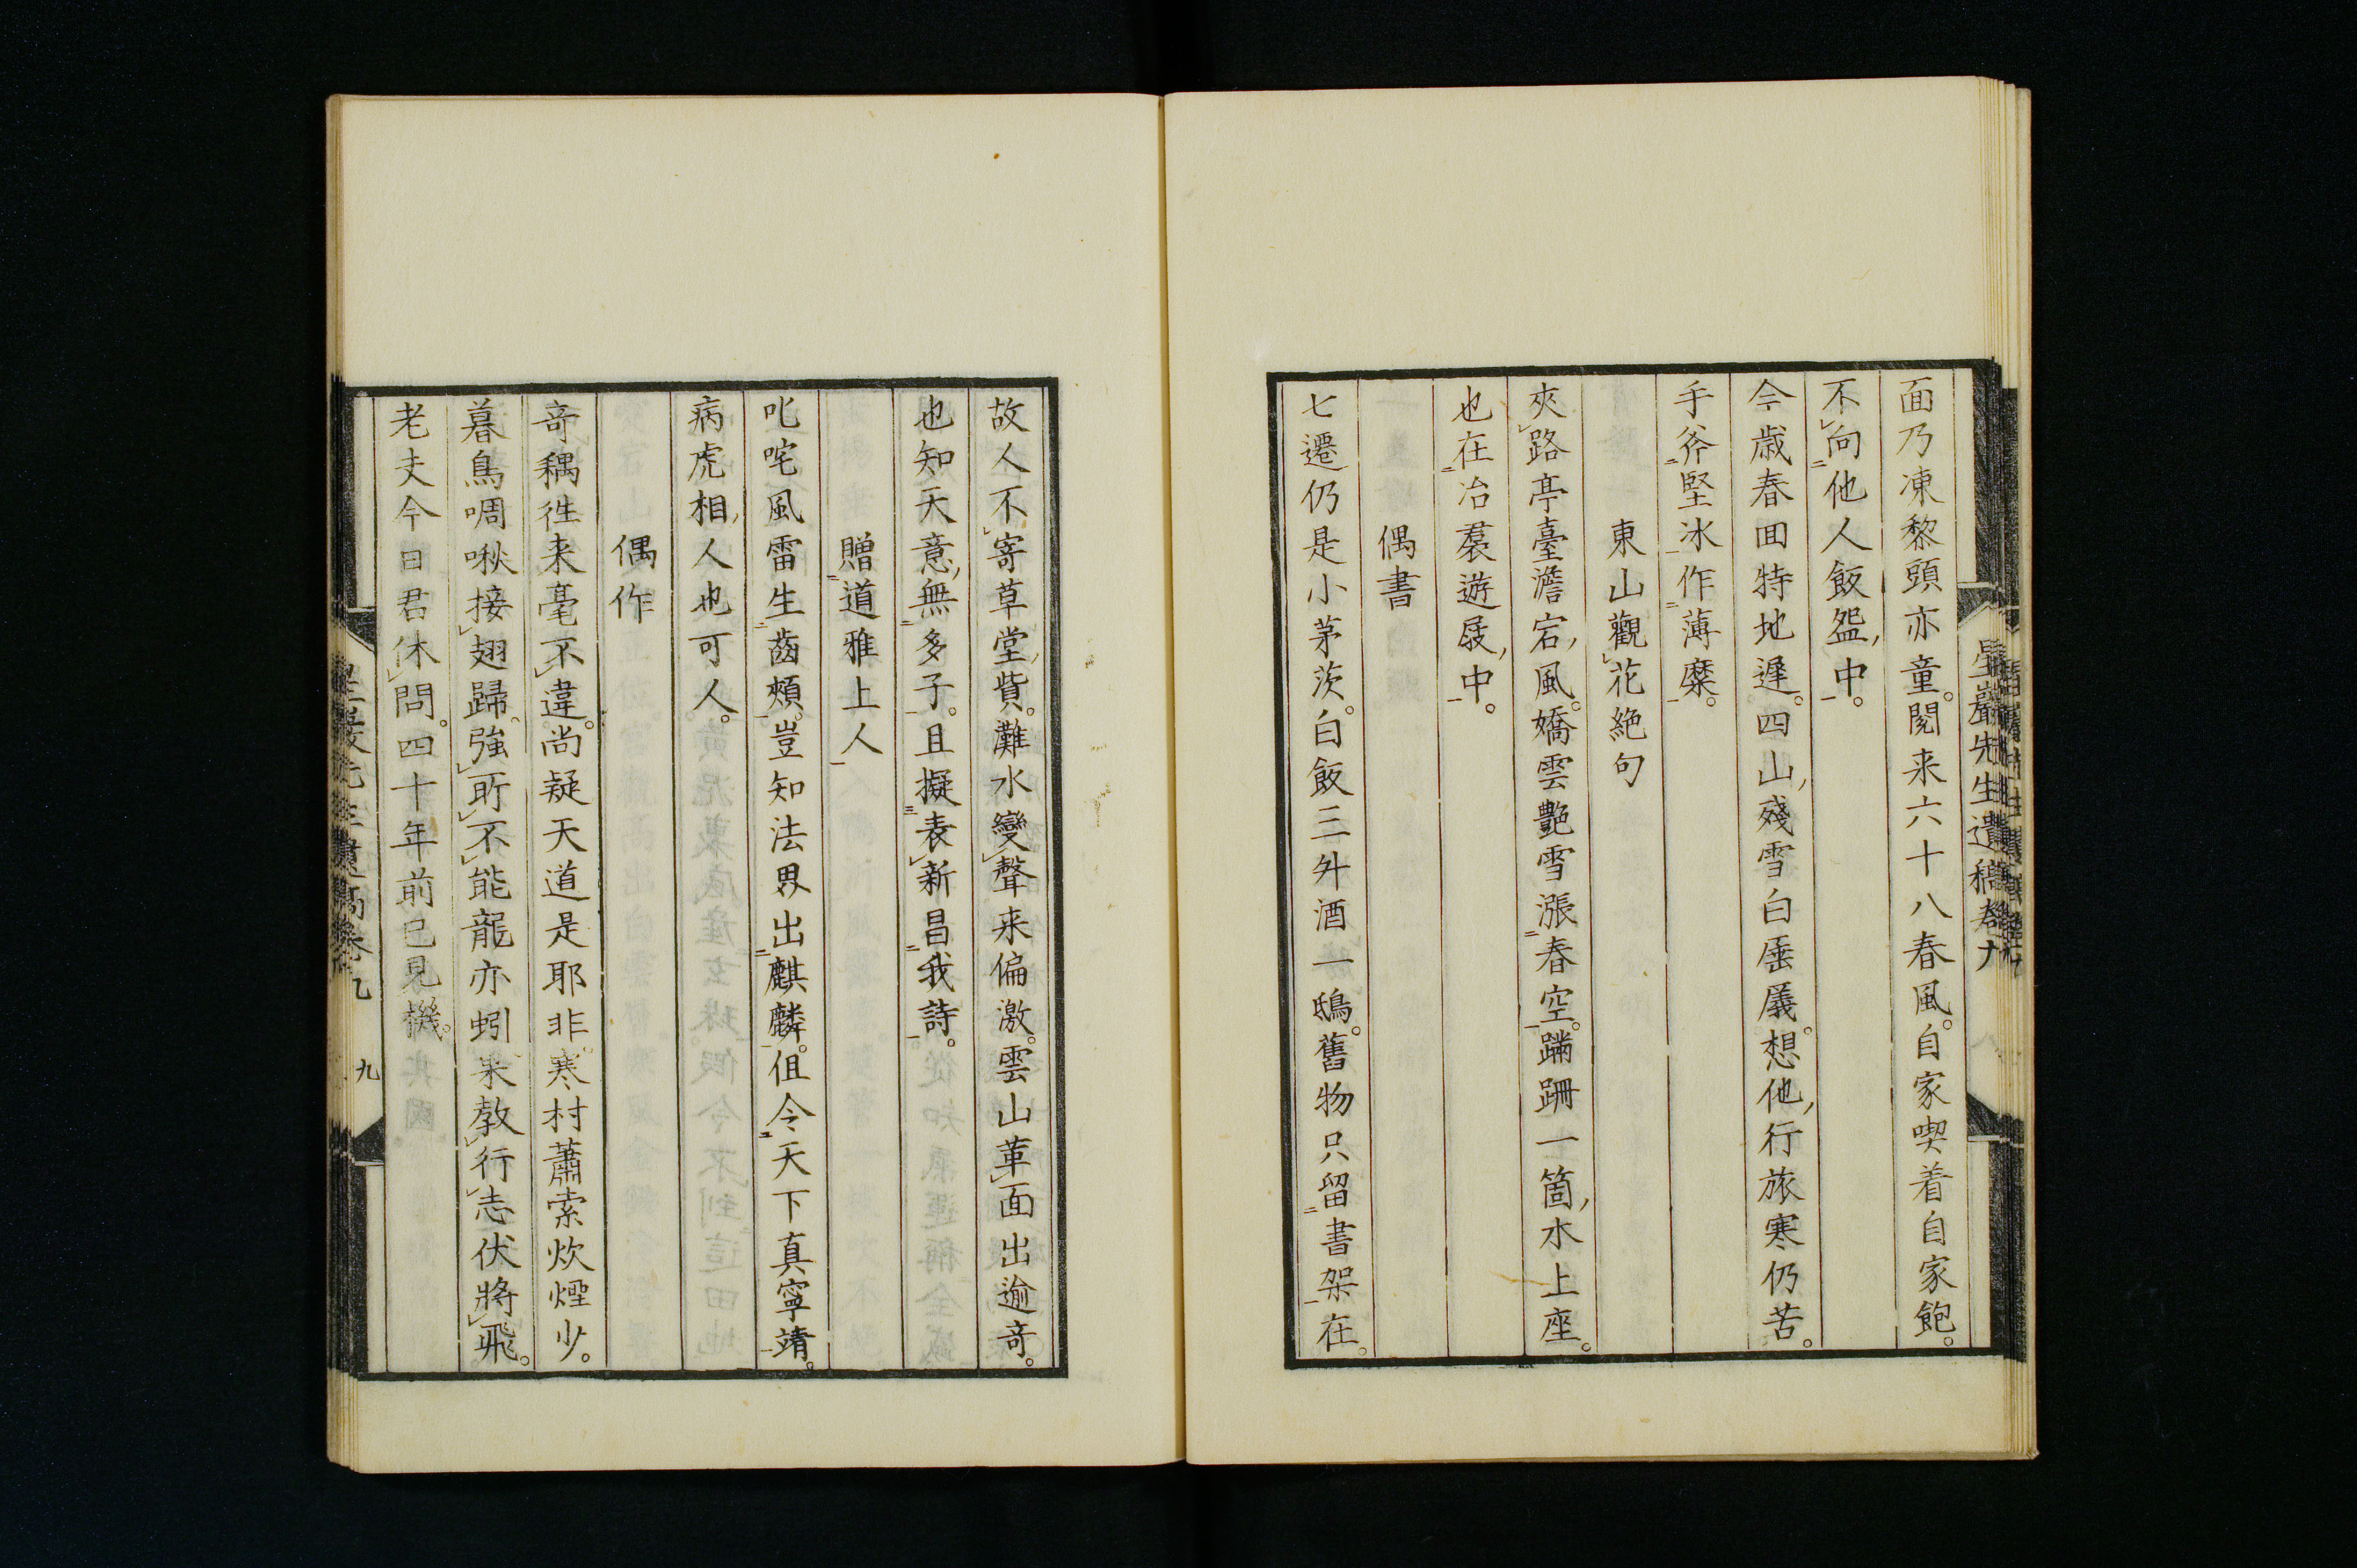 面乃凍黎頭亦童。閱来六十八春風。自家喫着自家飽。
不向他人飯盌中。
今歳春回特地遲。四山殘雪白厜㕒。想他行旅寒仍苦。
手斧堅冰作薄糜。
東山觀花絶句
夾路亭臺澹宕風。嬌雲艶雪漲春空。蹣跚一箇水上座。
也在冶羣遊屐中。
偶書
七遷仍是小茅茨。白飯三外酒一鴟。舊物只留書架在。
故人不寄草堂貲。灘水變聲来偏激。雲山革面出逾奇。
也知天意無多子。且擬表新昌我詩。
贈道雅上人
叱咤風雷生齒頰。豈知法界出麒麟。伹令天下真寧靖。
病虎相人也可人。
偶作
奇耦徃来毫不違。尚疑天道是耶非。寒村蕭索炊煙少。
暮鳥啁啾接翅歸。強所不能龍亦蚓。果教行志伏將飛。
老夫今日君休問。四十年前已見機。
九